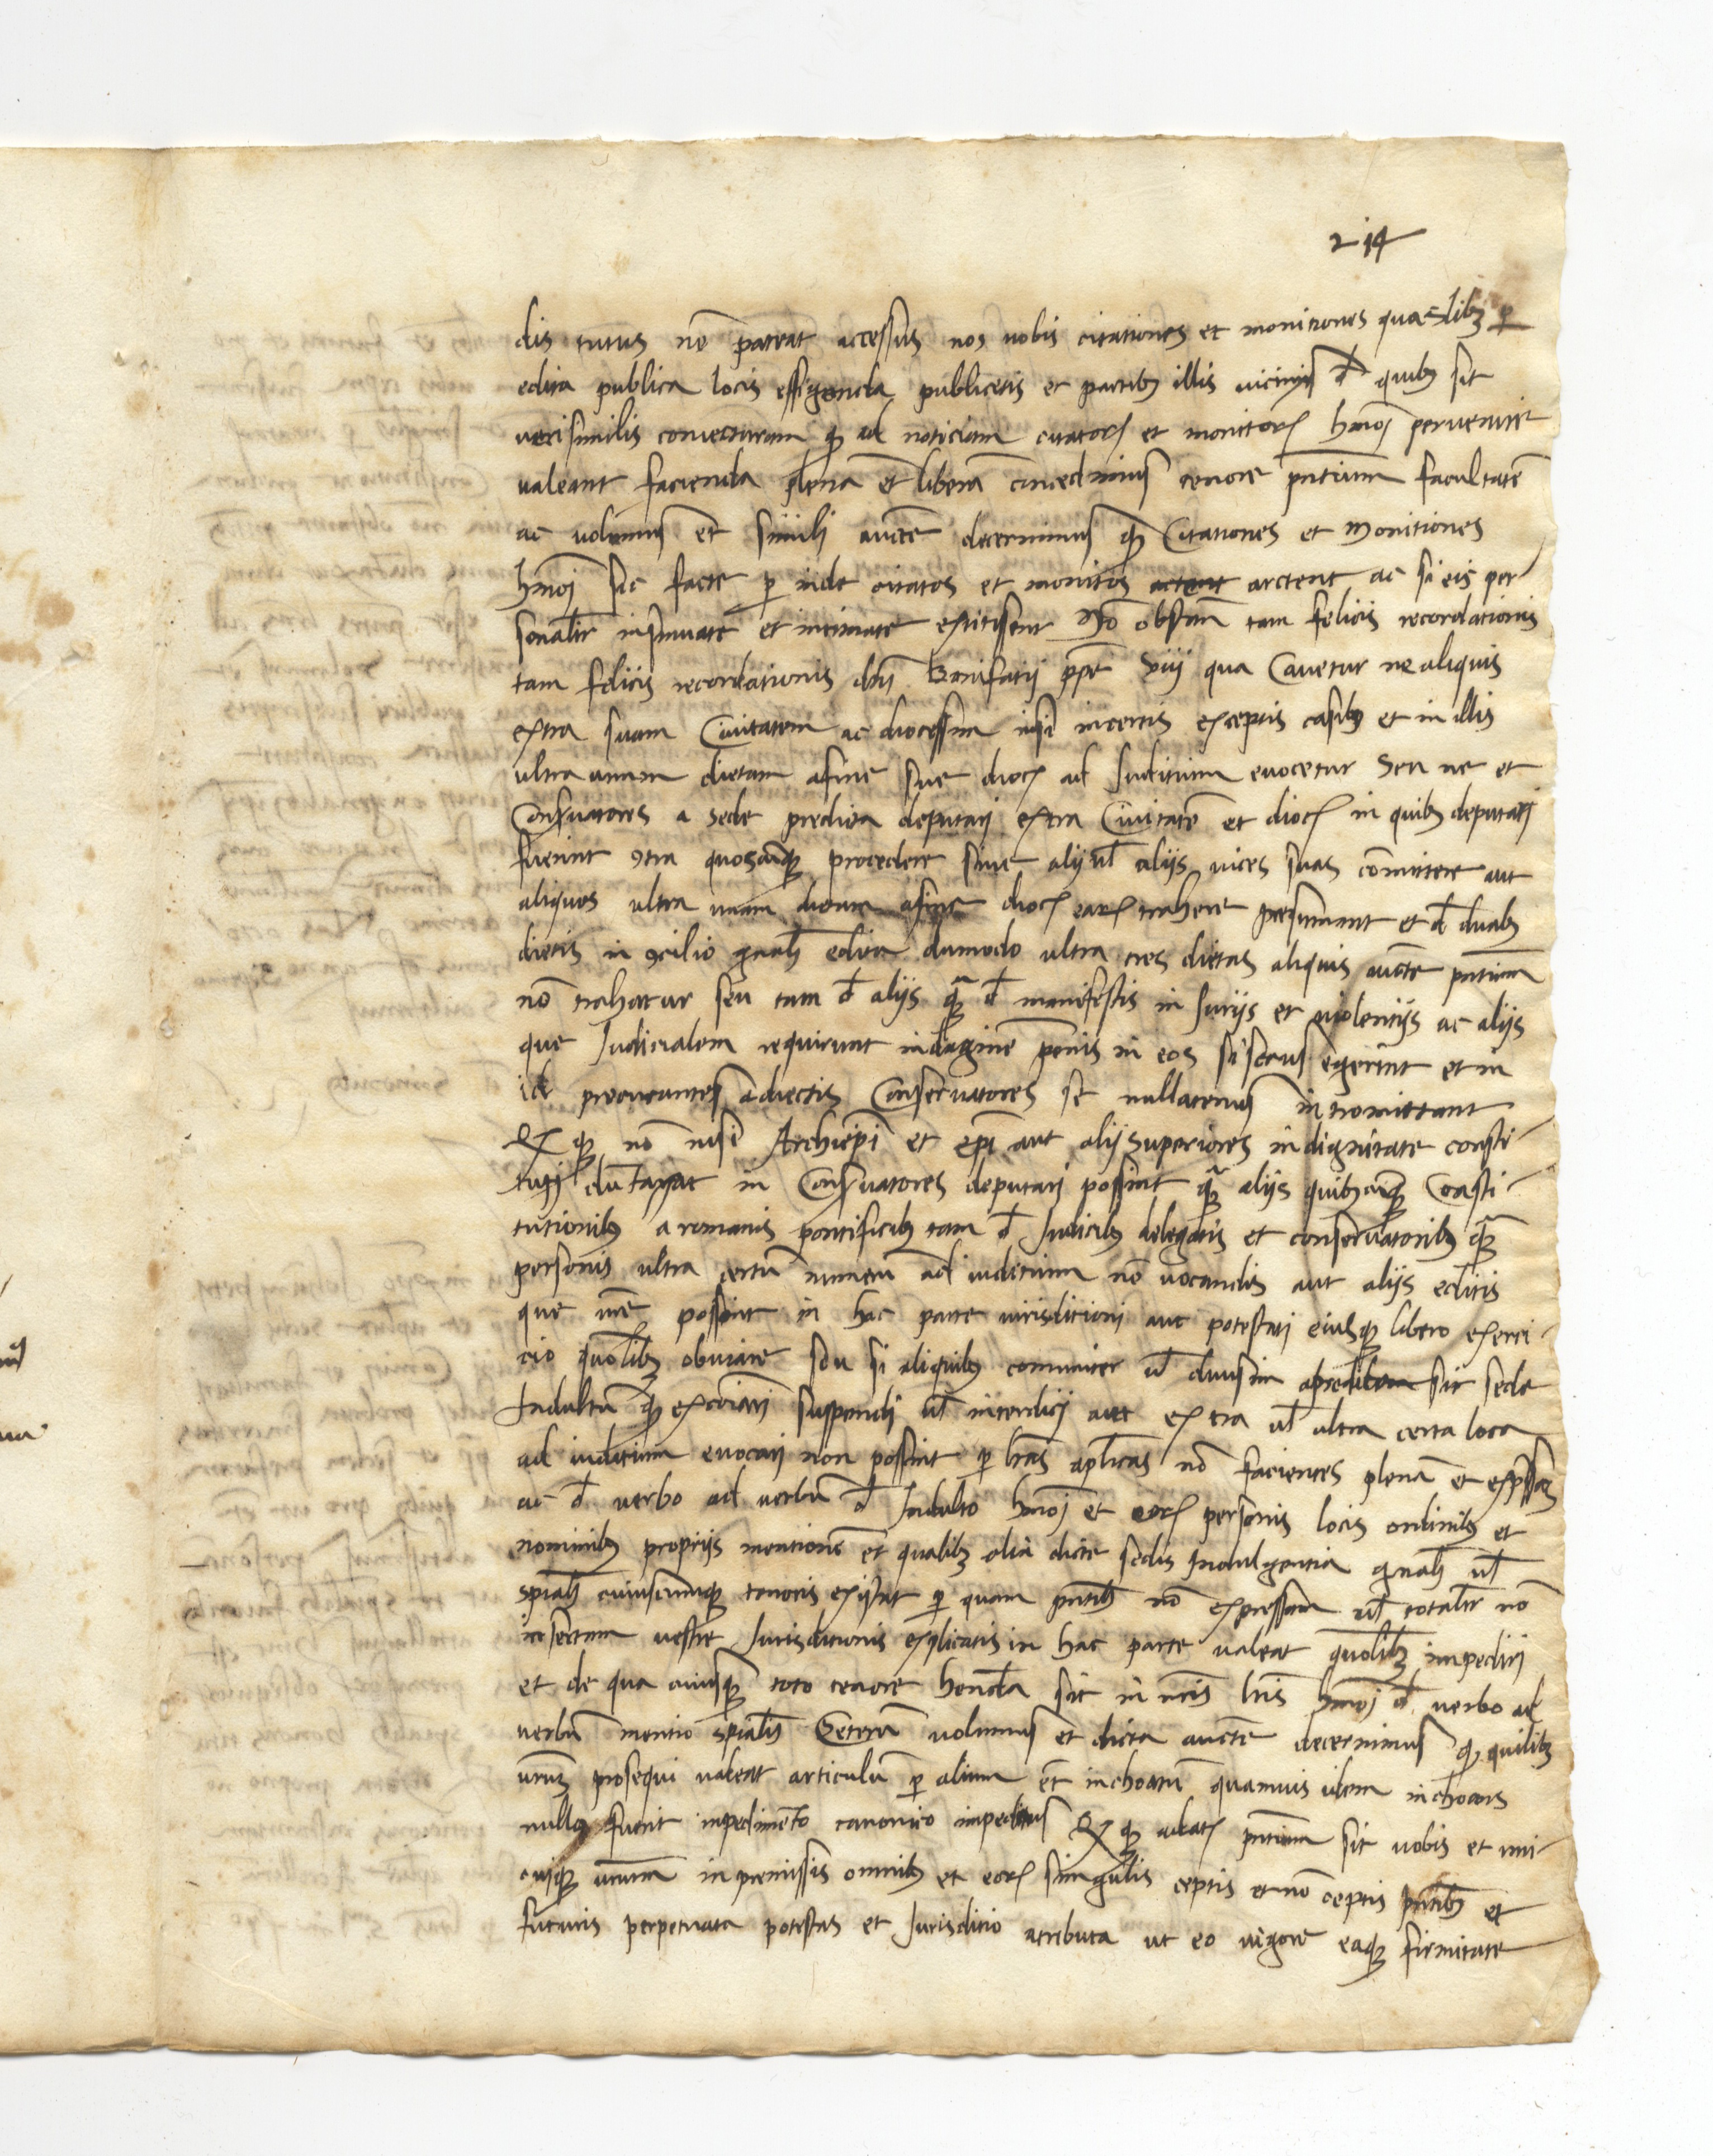 214
dis tutus nō pateat accessus nos uobis citationes et monitiones quaslibȝ ꝑ
edita publica locis affigenda publicetis et partibȝ illis uicinis đ quibȝ sit
uerisimilis coniecturam ꝙ ad noticiam citatorꝝ et monitorꝝ hmōj peruenire
ualeant facienda plenā et liberā concedimus tenore pn̄tium facultatē
ac uolumus et simili aucte decernimus ꝙ Citationes et Monitiones
hmōj sic facte ꝑ inde citatos et monitos arctent ac si eis per
sonalr̄ insinuate et intimate extitissent Nō obstan̄ tam felicis recordationis
tam felicis recordationis dn̄i Bonifatij pp̄e Viij qua Cauetur ne aliquis
extra suam Ciuitatem ac diocesim nisi in certis exceptis casibȝ et in illis
ultra unam dietam afine sue diocꝭ ad Juditium euocetur Seu ne et
Conſuatores a sede predicta deputati extra Ciuitatē et diocꝭ in quibȝ deputatj
fuerint ꝯtra quoscunqȝ procedere siue alij ul̄ aliis uices suas cōmittere aut
aliquos ultra unam dietam afine diocꝭ earꝝ trahere presumant et đ duabȝ
dietis in ꝯcilio gn̄alj edita dumodo ultra tres dietas aliquis aucte pn̄tium
nō trahatur seu tam đ alijs qꝫ đ manifestis in Jurijs et uiolentijs ac alijs
que Judicialem requirunt indaginē penis in eos si secus egerint et in
id procurantes adiectis Conseruatores se nullatenus intromittant
Et ꝙ nō nisi Archiep̄i et ep̄i aut alij superiores in dignitate consti
tutj dūtaxat in Conſuatores deputari possint qꝫ alijs quibȝcunqȝ Consti
tutionibȝ a romanis pontificibȝ tam đ Judicibȝ delegatis et conseruatoribȝ qꝫ
personis ultra certū numerū ad iuditium nō uocandis aut alijs editis
que ur̄e possint in hac parte iurisditioni aut potestati eiusqȝ libero exerci
cio quolibȝ obuiare seu si aliquibȝ comuniter ul̄ diuisim sit sede
Indultū ꝙ excōicari suspendi ul̄ interdicj aut extra ul̄ ultra certa loca
ad iuditium euocari non possint ꝑ lrās aplicas nō facientes plenā et exp̄ssam
ac đ uerbo ad uerbū đ Indulto hmōj et eorꝝ personis locis ordinibȝ et
nominibȝ proprijs mentionē et qualibȝ alia dicte sedis Indulgentia gn̄alj ul̄
spīalj cuiuscunqȝ tenoris existat ꝑ quam pn̄tibȝ nō expressam ul̄ totalr̄ nō
insertam uestre Jurisditionis explicatis in hac parte ualeat quolibȝ impedirj
et de qua cuiusqȝ toto tenore hend̄a sit in nr̄is lr̄is hmōj đ uerbo ad
uerbū mentio spīalis Ceterū uolumus et dicta aucte decernimus ꝙ quilibȝ
ur̄um prosequi ualeat articulū ꝑ alium et inchoatū quamuis idem inchoans
nullo fuerit impedimēto canonico impeditus Et ꝙ adatꝭ pn̄tium sit uobis et uni
cuiqȝ ur̄um in premissis omnibȝ et eorꝝ singulis ceptis et nō ceptis pn̄tibȝ et
futuris perpetuata potestas et Jurisditio atributa ut eo uigore eaqȝ firmitate